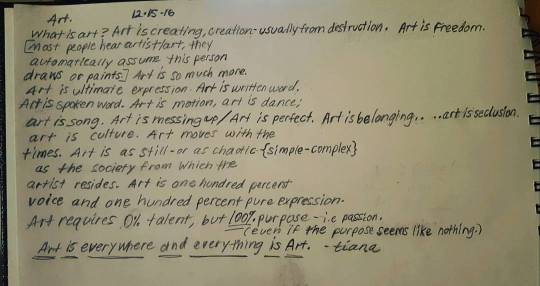 Art. 12-15-16
What is art? Art is creating, creation- usually from destruction. Art is Freedom.
[Most people hear artist/art, they
automatically assume this person
draws or paints.] Art is so much more.
Art is ultimate expression. Art is written word.
Art is spoken word. Art is motion, art is dance;
art is song. Art is messing up/Art is perfect. Art is belonging.. ..art is seclusion.
art is culture. Art moves with the
times. Art is as still-or as chaotic-{simple-complex}
as the society from which the
artist resides. Art is one hundred percent
voice and one hundred percent pure expression.
Art requires 0% talent, but 100% purpose-i.e passion.
(even if the purpose seems like nothing.)
Art is everywhere and everything is Art. -tiana